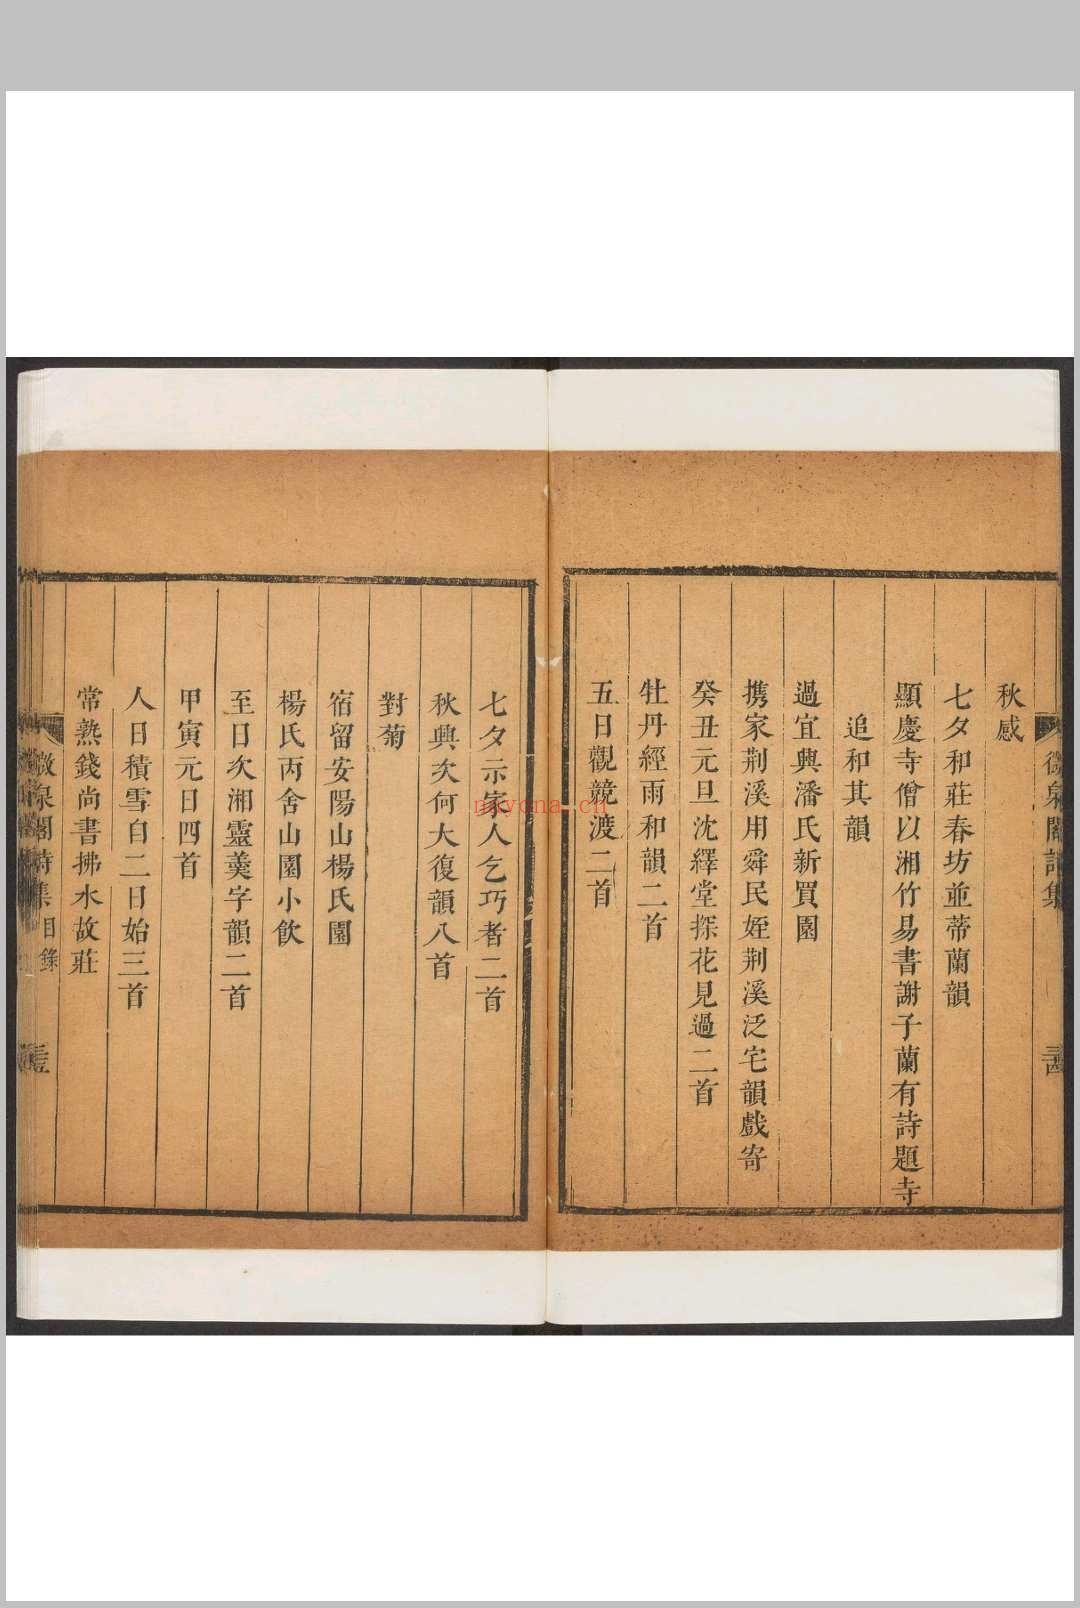 秋感
七夕和莊春坊並蒂蘭韻
顯慶寺僧以湘竹易書謝子蘭有詩題寺
追和其韻
過宜興潘氏新買園
携家荆溪用舜民姪荆溪泛宅韻戲寄
癸丑元旦沈繹堂探花見過二首
牡丹經雨和韻二首
五日觀競渡二首
七夕示家人乞巧者二首
秋興次何大復韻八首
對菊
宿留安陽山楊氏園
楊氏丙舍山園小飲
至日次湘靈羹字韻二首
甲寅元日四首
人日積雪自二日始三首
常熟錢尚書拂水故莊
微泉閣詩集 目錄